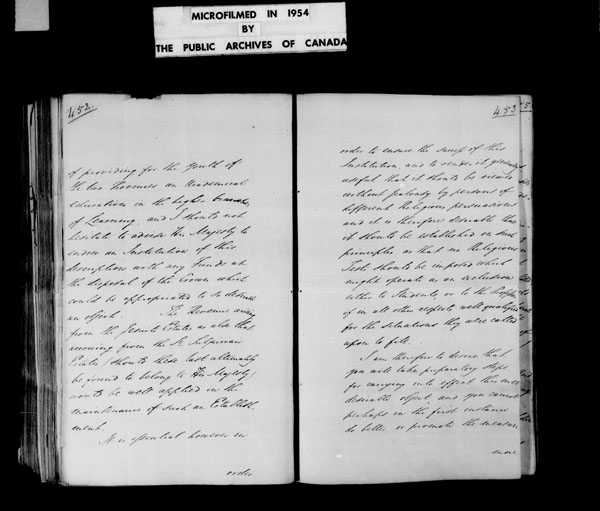 MICROFILMED IN 1954
BY
THE PUBLIC ARCHIVES OF CANADA
452.
of providing for the Youth of
the two Provinces an Academical
education in the higher branches
of Learning, and I should not
hesitate to advise His Majesty to
endow an Institution of this
description with any Funds at
the disposal of the Crown which
could be appropriated to so desirable
an object. The Revenues arising
from the Jesuit Estates as also that
accruing from the St. Sulpician
Estates (should these last ultimately
be found to belong to His Majesty)
would be well applied in the
maintenance of such an Establish-
ment.
It is essential however in
order
453
order to ensure the success of this
Institution, and to render it generally
useful that it should be viewed
without jealousy by persons of
different Religious persuasions
and it is therefore desirable that
it should be established on such
principles as that no Religious
Test should be imposed which
might operate as an exclusion
either to Students, or to the Professors
if in all other respects well qualified
for the situations they were called
upon to fill.
I am therefore to desire that
you will take preparatory steps
for carrying into effect this most
desirable object, and you cannot
perhaps in the first instance
do better, or promote the measure
more